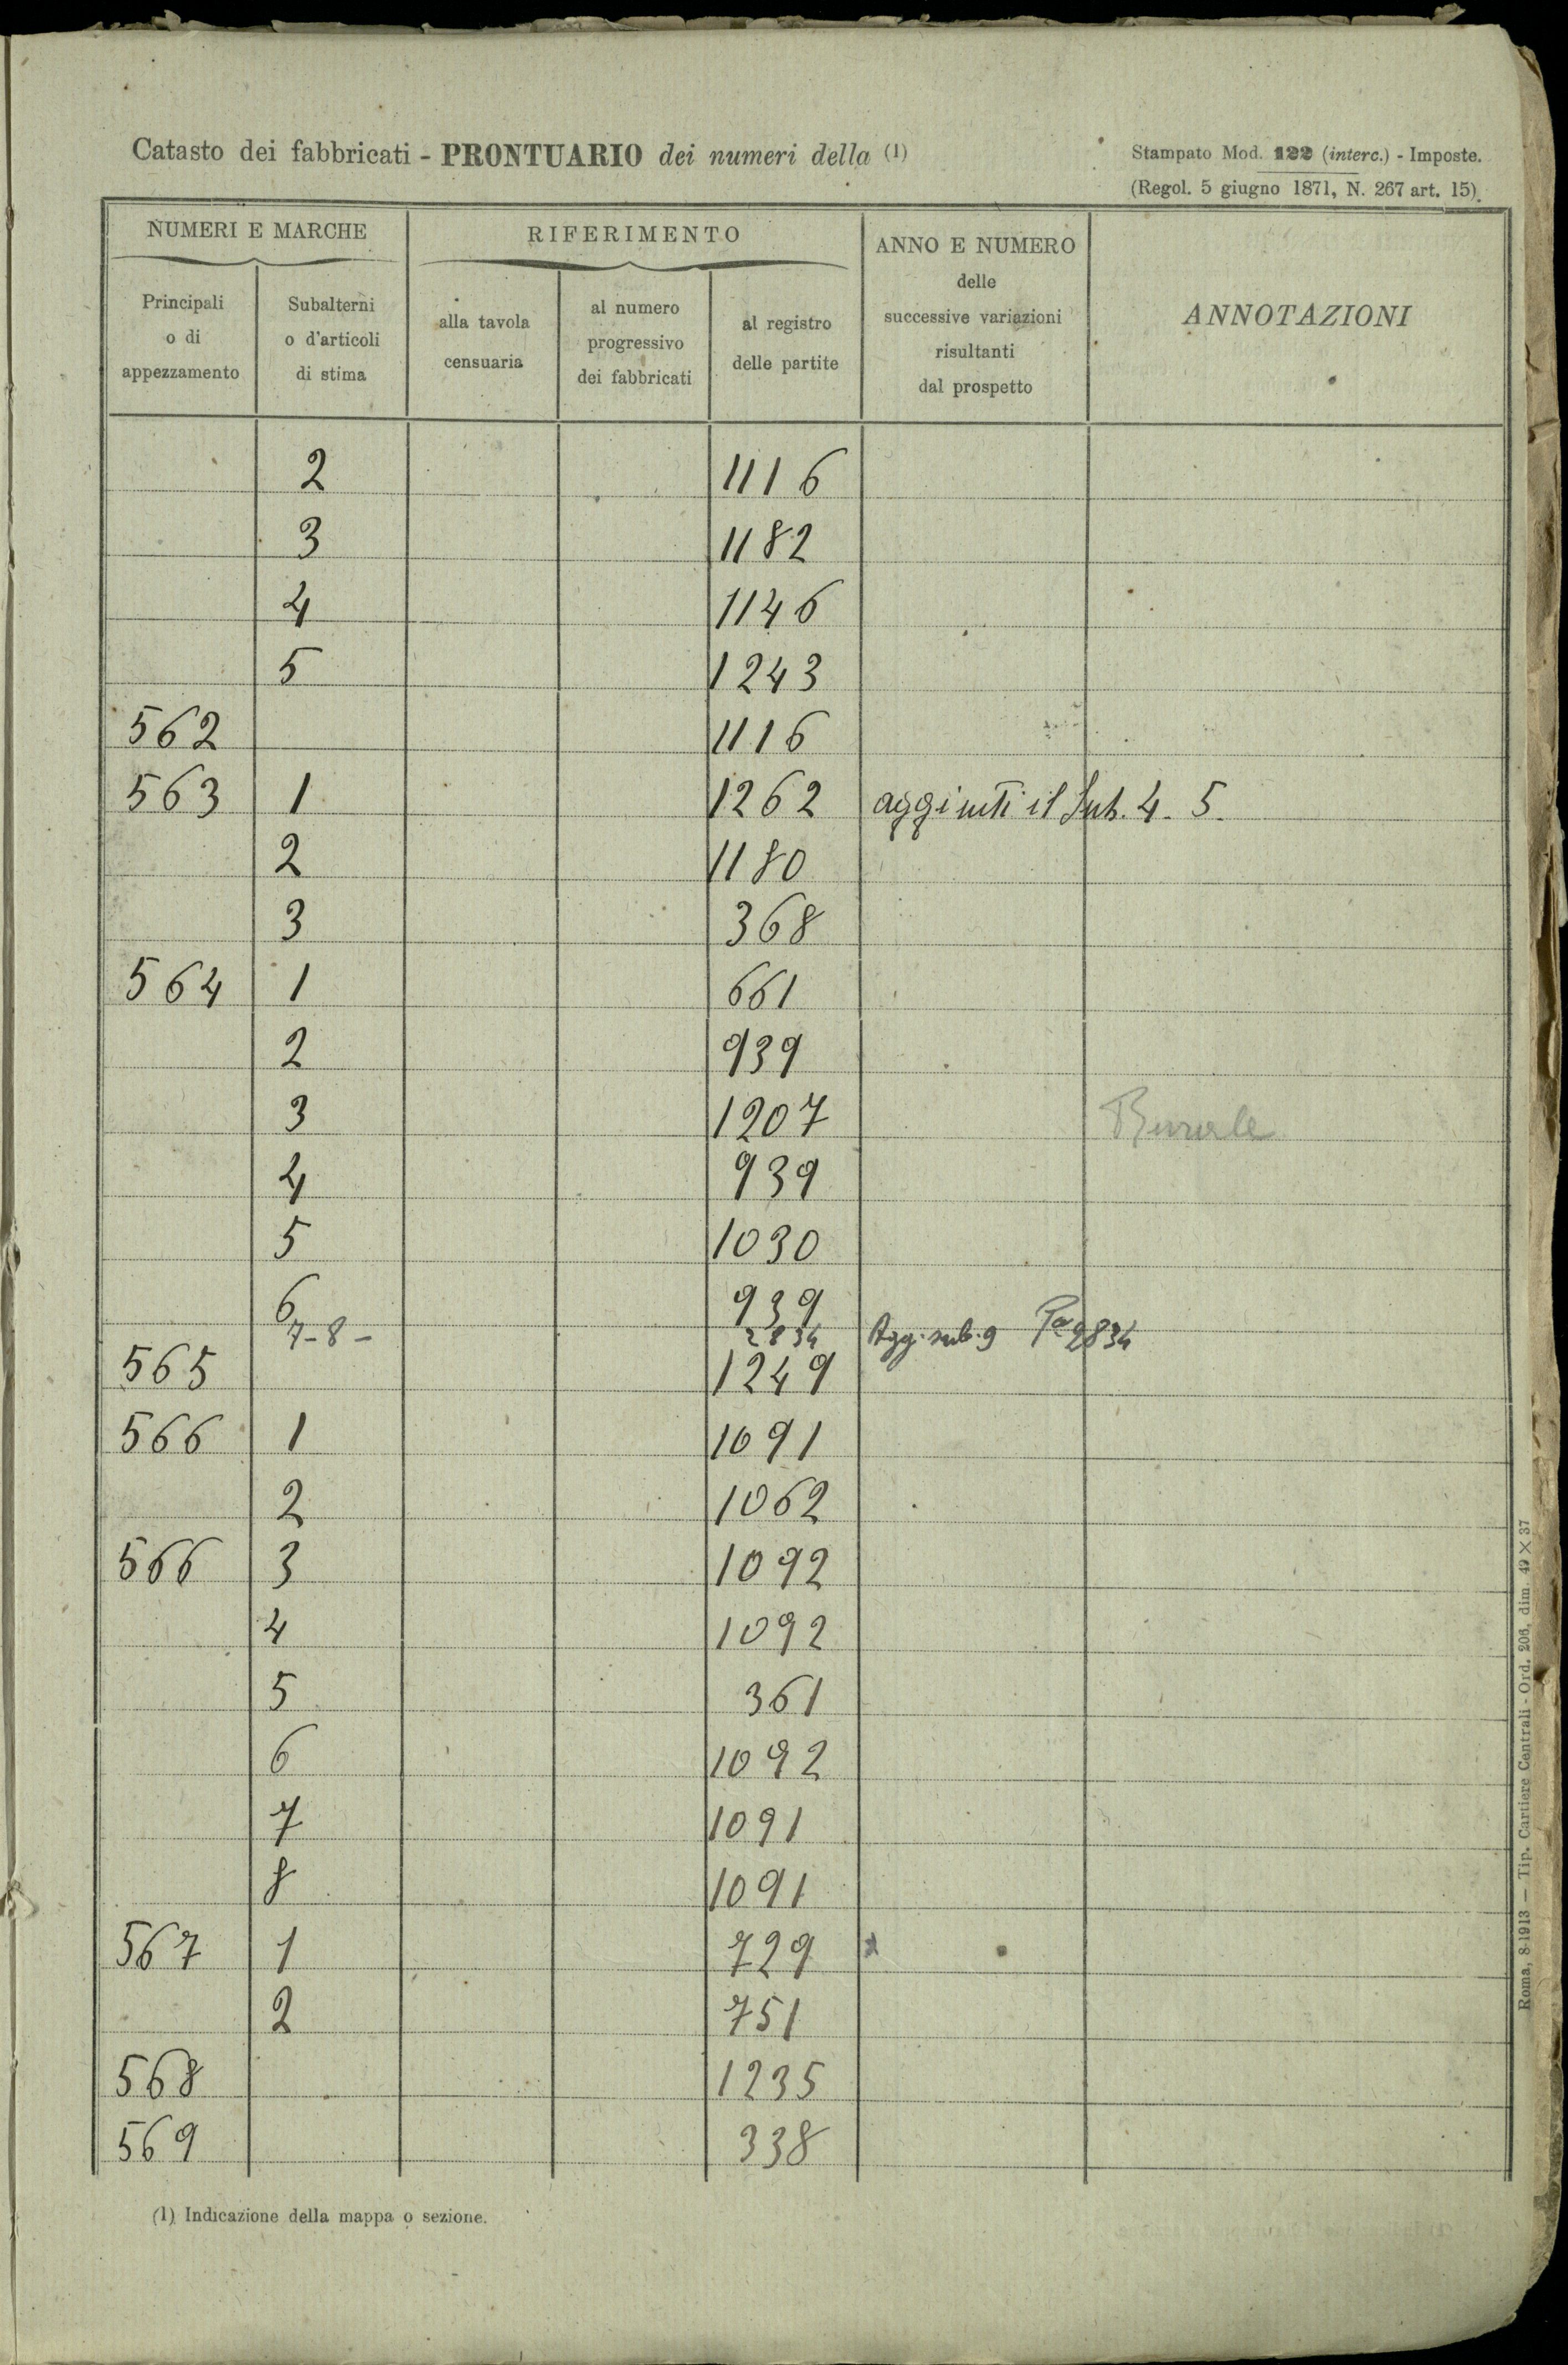 Catasto dei fabbricati - PRONTUARIO dei numeri della (1)
Stampato Mod. 122 (interc.) - Imposte.
(Regol. 5 giugno 1871, N. 267 art. 15).
NUMERI E MARCHE
RIFERIMENTO
ANNO E NUMERO
delle
successive variazioni
risultanti
dal prospetto
ANNOTAZIONI
Principali
o di
appezzamento
Subalterni
o d'articoli
di stima
alla tavola
censuaria
al numero
progressivo
dei fabbricati
al registro
delle partite
2 1116
3 1182
4 1146
5 1243
562 1116
563 1 1262 aggiunti il Sub. 4. 5.
2 1180
3 368
564 1 661
2 939
3 1207 Rurale
4 939
5 1030
6 939
7-8- 2834 Agg. sub. 9 Pa 2834
565 1249
566 1 1091
2 1062
566 3 1092
4 1092
5 361
6 1092
7 1091
8 1091
567 1 729
2 751
568 1235
569 338
(1) Indicazione della mappa o sezione.
Roma, 8-1913 — Tip. Cartiere Centrali - Ord. 206, dim. 49 × 37